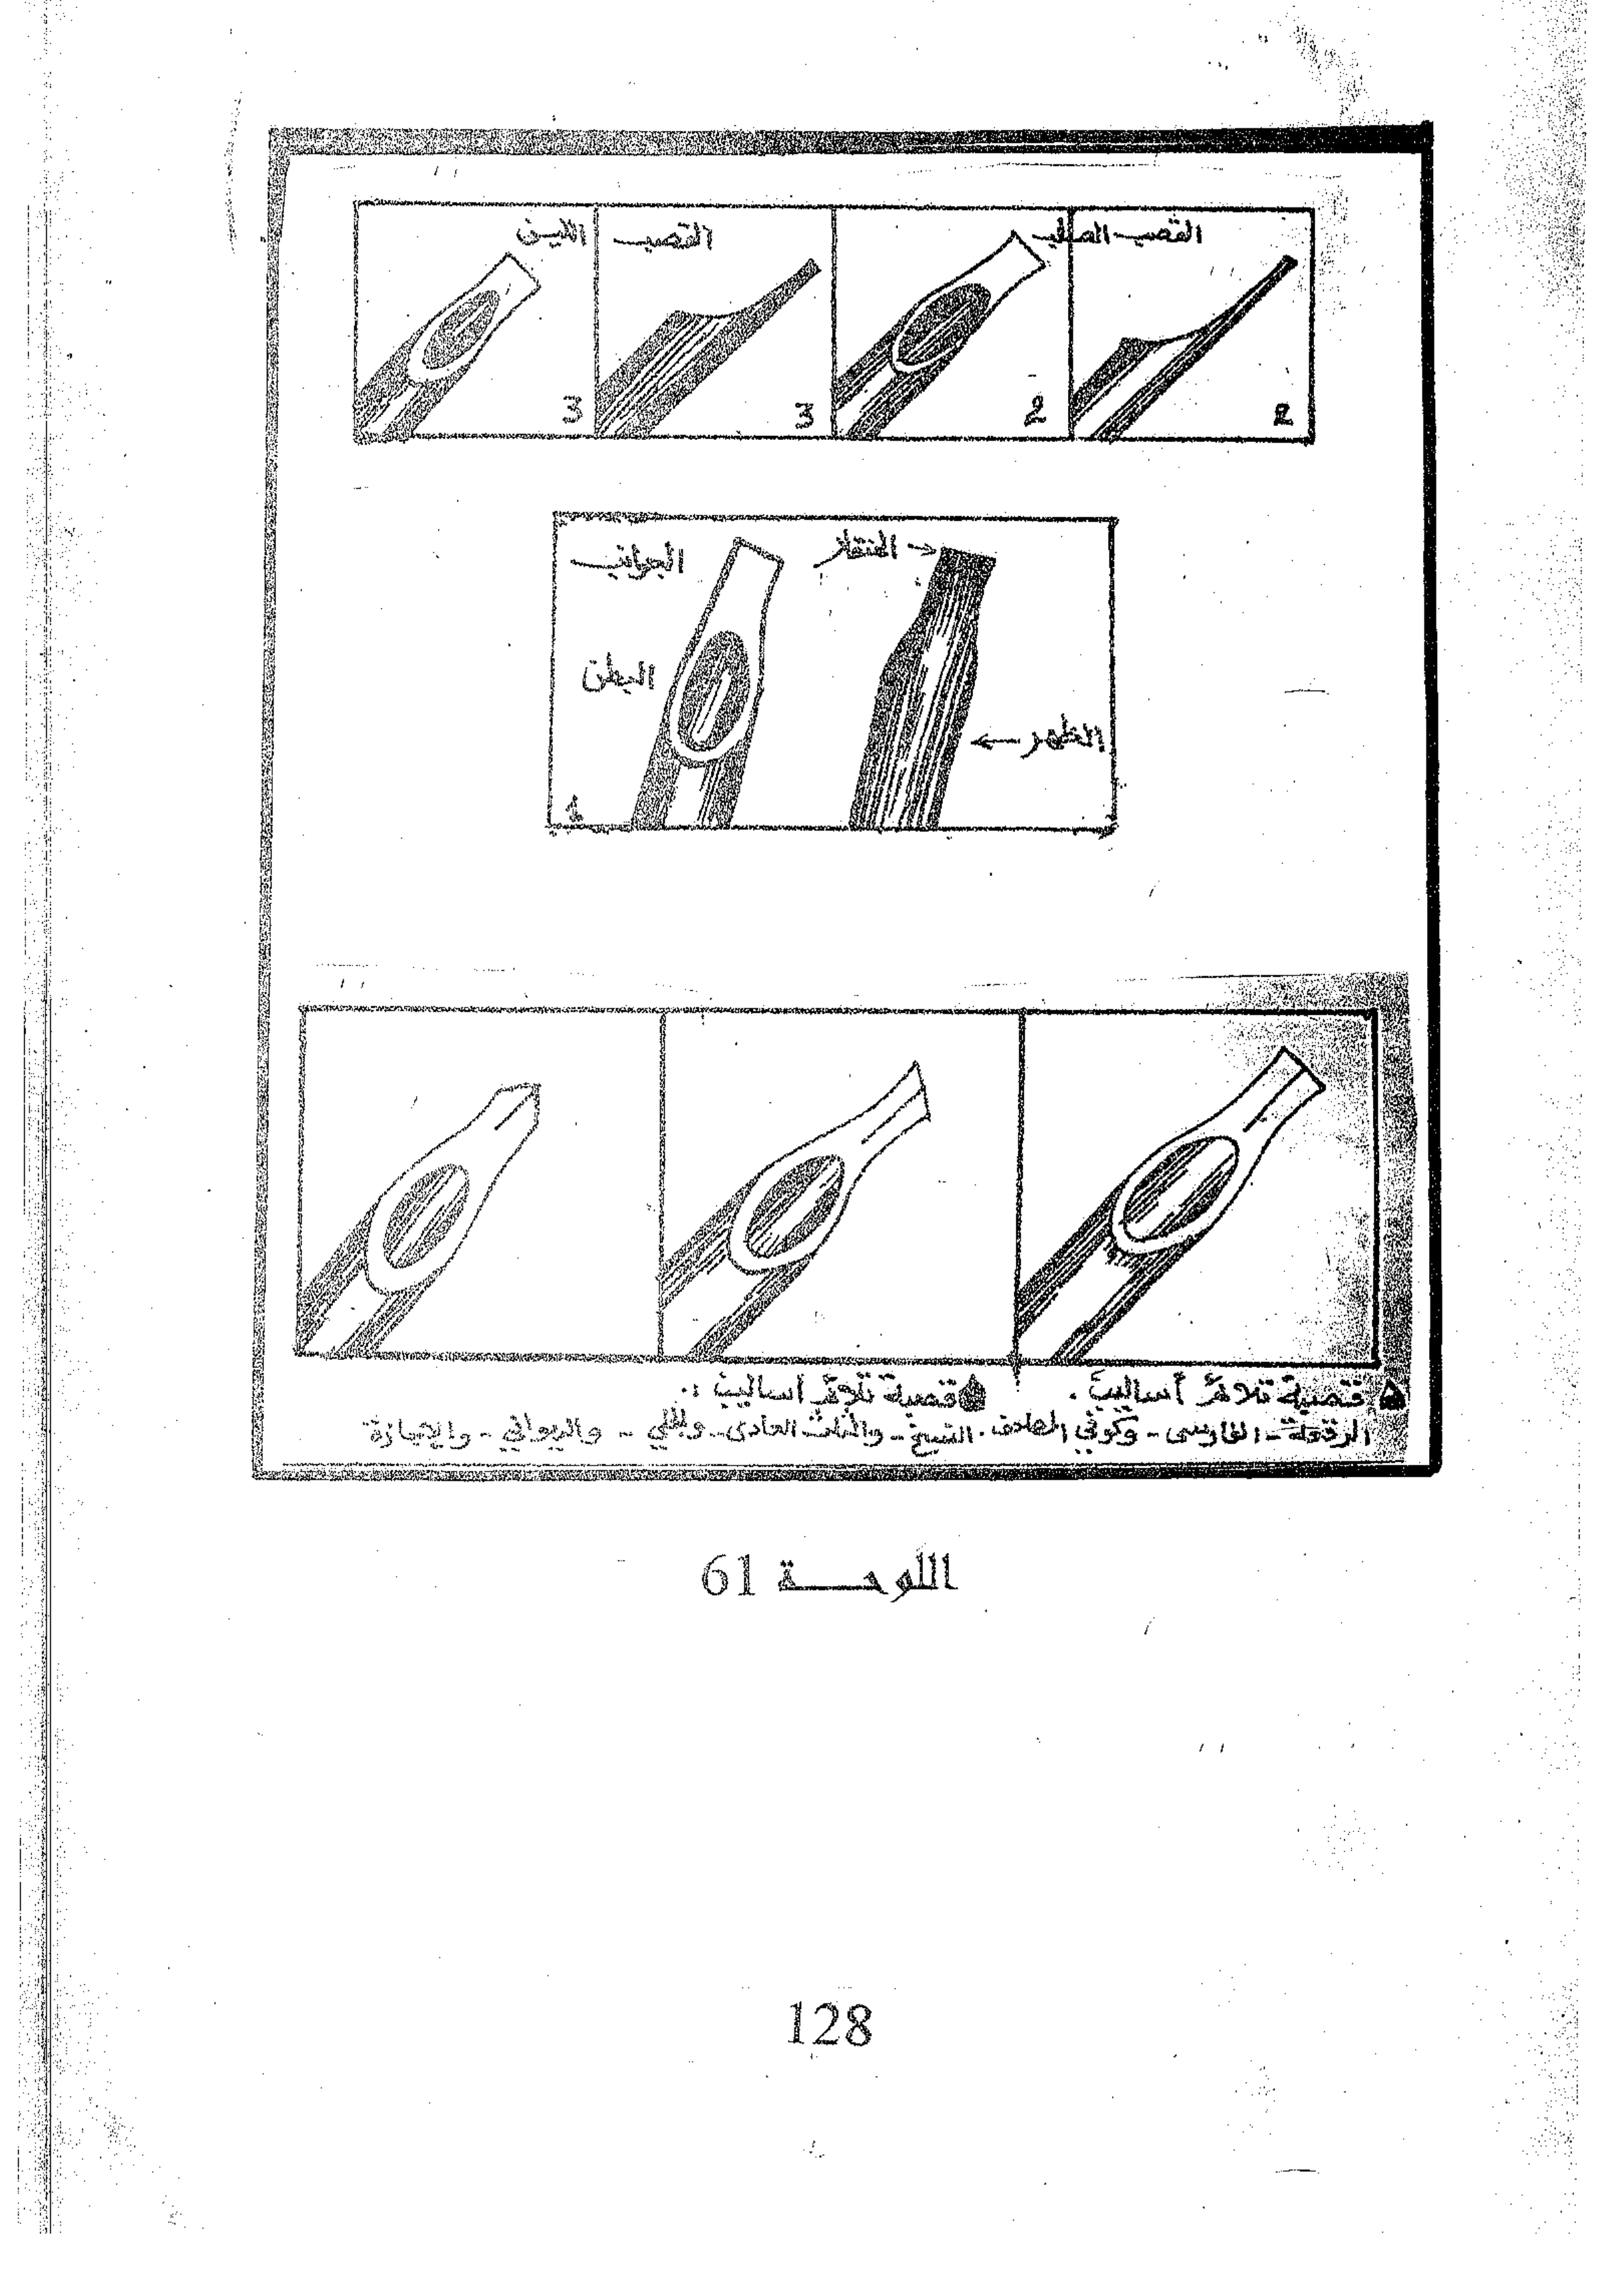 القصب الصلب
القصب اللين
2
2
3
3
المنقار
الجوانب
البطن
الظهر
1
قصبة تلائم أساليب .
قصبة تلائم أساليب :
الرقعة - الفارسي - وكوفي المصاحف . النسخ - والثلث العادي - والجلي - والديواني - والإجازة
اللوحة 61
128